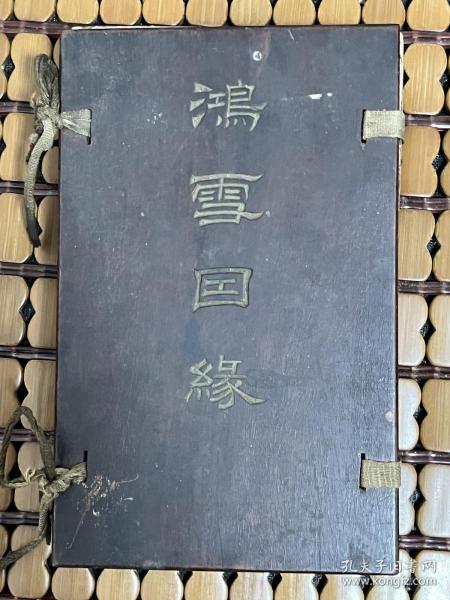 鴻雪因緣
孔夫子旧书网
www.kongfz.com